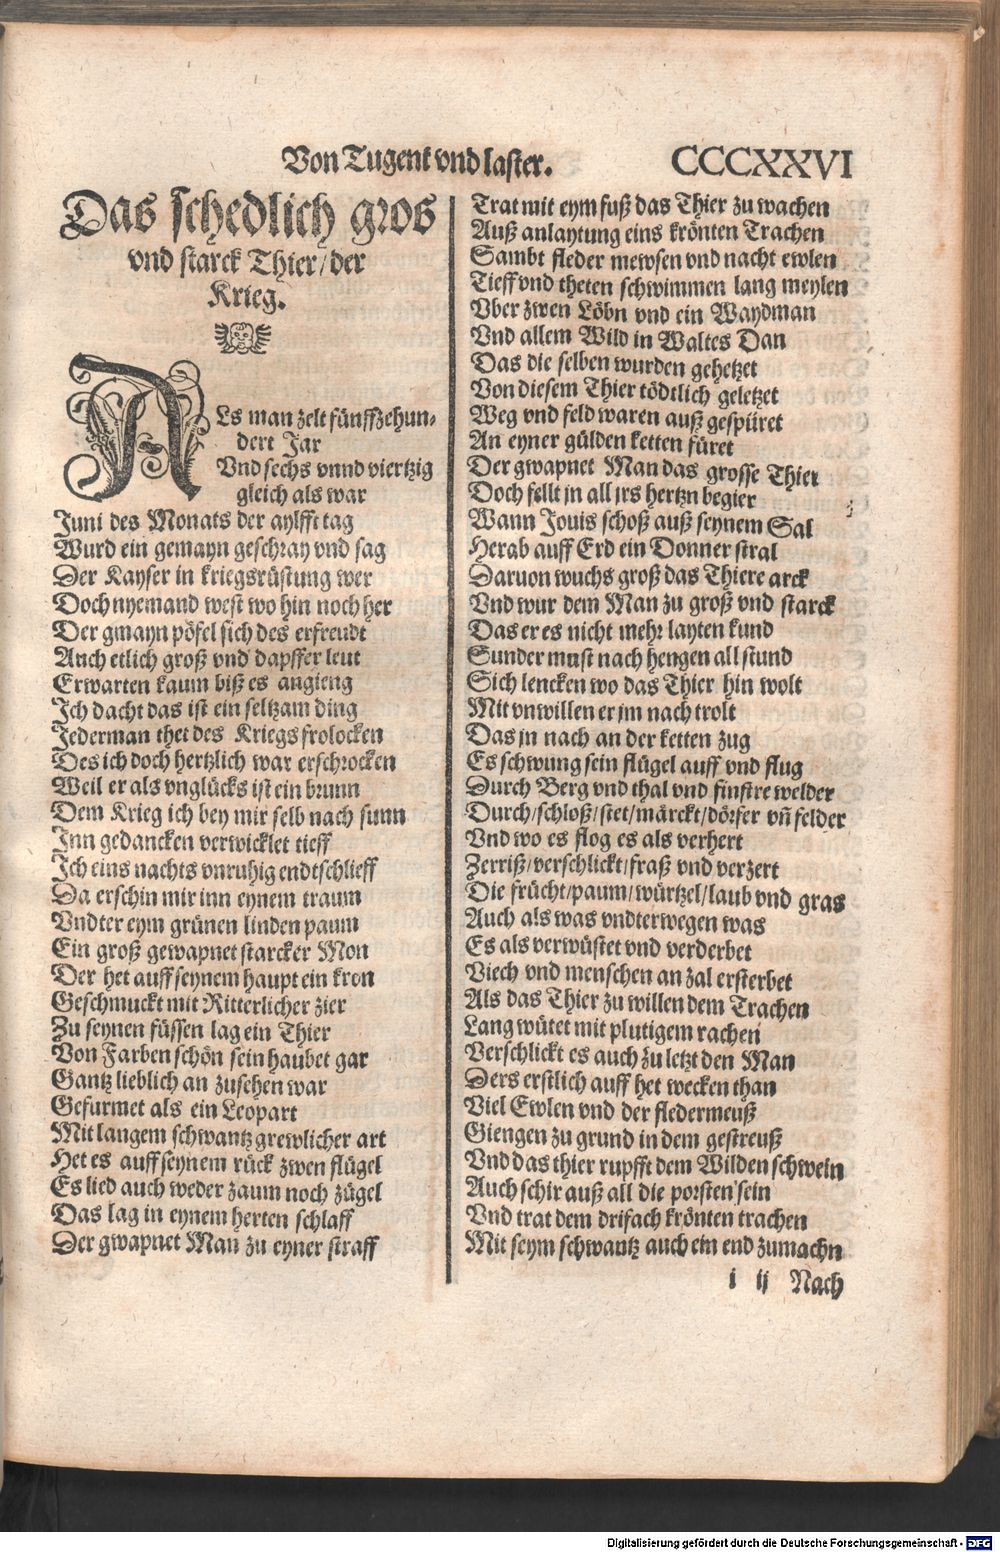 Von Tugent vnd laster.
CCCXXVI
Das schedlich gros
vnd starck Thier/der
Krieg.
ALs man zelt fünffzehun-
dert Jar
Vnd sechs vnnd viertzig
gleich als war
Juni des Monats der aylfft tag
Wurd ein gemayn geschray vnd sag
Der Kayser in kriegsrüstung wer
Doch nyemand west wo hin noch her
Der gmayn pöfel sich des erfreudt
Auch etlich groß vnd dapffer leut
Erwarten kaum biß es angieng
Ich dacht das ist ein seltzam ding
Jederman thet des Kriegs frolocken
Des ich doch hertzlich war erschrocken
Weil er als vnglücks ist ein brunn
Dem Krieg ich bey mir selb nach sunn
Inn gedancken verwicklet tieff
Ich eins nachts vnruhig endtschlieff
Da erschin mir inn eynem traum
Vndter eym grünen linden paum
Ein groß gewapnet starcker Mon
Der het auff seynem haupt ein kron
Geschmuckt mit Ritterlicher zier
Zu seynen füssen lag ein Thier
Von Farben schön sein haubet gar
Gantz lieblich an zusehen war
Gefurmet als ein Leopart
Mit langem schwantz grewlicher art
Het es auff seynem rück zwen flügel
Es lied auch weder zaum noch zügel
Das lag in eynem herten schlaff
Der gwapnet Man zu eyner straff
Trat mit eym fuß das Thier zu wachen
Auß anlaytung eins krönten Trachen
Sambt fleder mewsen vnd nacht ewlen
Tieff vnd theten schwimmen lang meylen
Vber zwen Löbn vnd ein Waydman
Vnd allem Wild in Waltes Dan
Das die selben wurden gehetzet
Von diesem Thier tödtlich geletzet
Weg vnd feld waren auß gespüret
An eyner gülden ketten füret
Der gwapnet Man das grosse Thier
Doch fellt jn all jrs hertzn begier
Wann Jouis schoß auß seynem Sal
Herab auff Erd ein Donner stral
Daruon wuchs groß das Thiere arck
Vnd wur dem Man zu groß vnd starck
Das er es nicht mehr layten kund
Sunder must nach hengen all stund
Sich lencken wo das Thier hin wolt
Mit vnwillen er jm nach trolt
Das jn nach an der ketten zug
Es schwung sein flügel auff vnd flug
Durch Berg vnd thal vnd finstre welder
Durch/schloß/stet/märckt/dörfer vñ felder
Vnd wo es flog es als verhert
Zerriß/verschlickt/fraß vnd verzert
Die frücht/paum/würtzel/laub vnd gras
Auch als was vndterwegen was
Es als verwüstet vnd verderbet
Viech vnd menschen an zal ersterbet
Als das Thier zu willen dem Trachen
Lang wütet mit plutigem rachen
Verschlickt es auch zu letzt den Man
Ders erstlich auff het wecken than
Viel Ewlen vnd der fledermeuß
Giengen zu grund in dem gestreuß
Vnd das thier rupfft dem Wilden schwein
Auch schir auß all die porsten sein
Vnd trat dem drifach krönten trachen
Mit seym schwantz auch ein end zumachn
i ij Nach
Digitalisierung gefördert durch die Deutsche Forschungsgemeinschaft - DFG